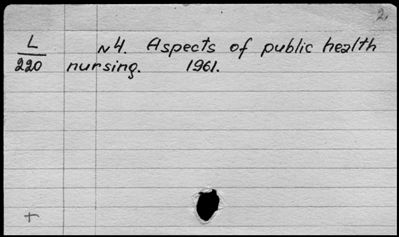 2.
L N4. Aspects of public health
220 nursing. 1961.
+